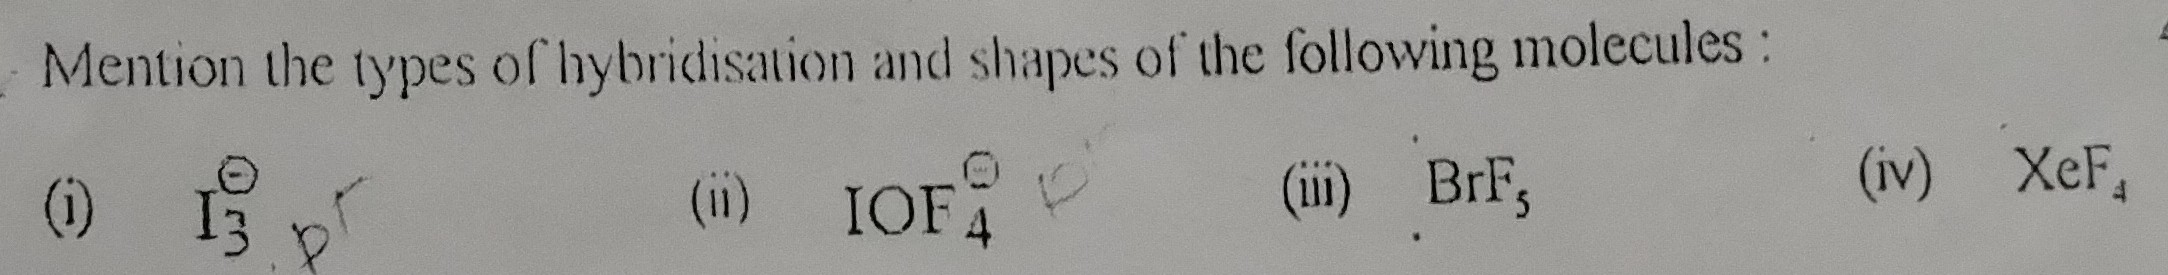 Mention the types of hybridisation and shapes of the following molecules :
(i) I₃⊖ (ii) IOF₄⊖ (iii) BrF₅ (iv) XeF₄